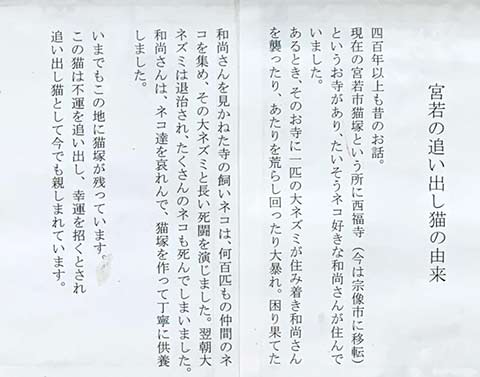 宮若の追い出し猫の由来
四百年以上も昔のお話。
現在の宮若市猫塚という所に西福寺（今は宗像市に移転）
というお寺があり、たいそうネコ好きな和尚さんが住んで
いました。
あるとき、そのお寺に一匹の大ネズミが住み着き和尚さん
を襲ったり、あたりを荒らし回ったり大暴れ。困り果てた
和尚さんを見かねた寺の飼いネコは、何百匹もの仲間のネ
コを集め、その大ネズミと長い死闘を演じました。翌朝大
ネズミは退治され、たくさんのネコも死んでしまいました。
和尚さんは、ネコ達を哀れんで、猫塚を作って丁寧に供養
しました。
いまでもこの地に猫塚が残っています。
この猫は不運を追い出し、幸運を招くとされ
追い出し猫として今でも親しまれています。